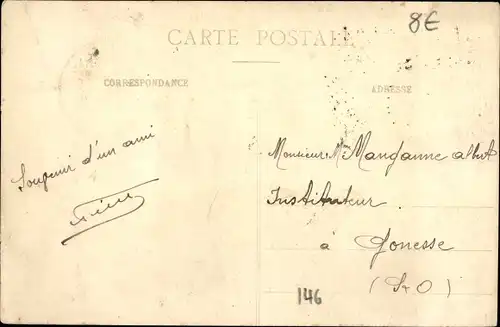 8€
CARTE POSTALE
CORRESPONDANCE
ADRESSE
Souvenir d'un ami
Monsieur Mme Mandanne albert
Instituteur
à Gonesse
(S+O)
146